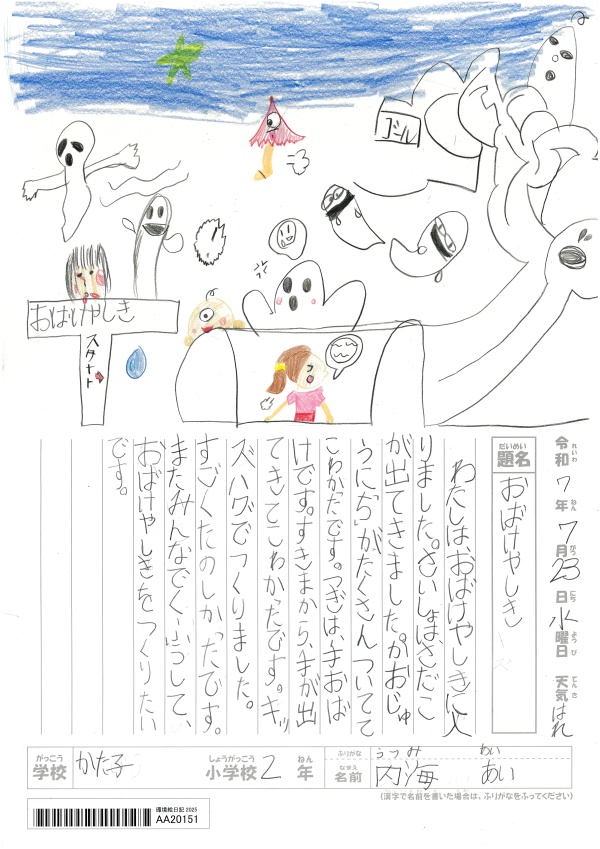 ゴール
おばけやしき
スタート
令和7年7月23日水曜日 天気はれ
れいわ ねん がつ にち ようび てんき
題名 おばけやしき
だいめい
わたしは、おばけやしきに入
りました。さいしょはさだこ
が出てきました。かおじゅ
うにぢがたくさんついてて
こわかったです。つぎは、手おば
けです。すきまから、手が出
てきてこわかったです。キッ
ズハグでつくりました。
すごくたのしかったです。
またみんなでくふうして、
おばけやしきをつくりたい
です。
がっこう しょうがっこう ねん
学校 かた子 小学校 2 年
ふりがな うつみ あい
なまえ
名前 内海 あい
(漢字で名前を書いた場合は、ふりがなをふってください)
環境絵日記 2025
AA20151